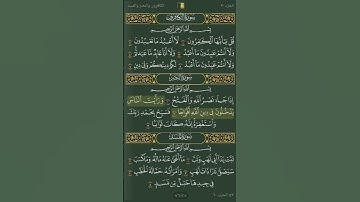 الكافرون والنصر والمسد
سُورَةُ الكَافِرُونَ
بِسْمِ اللَّهِ الرَّحْمَٰنِ الرَّحِيمِ
قُلْ يَا أَيُّهَا الْكَافِرُونَ ۝ لَا أَعْبُدُ مَا تَعْبُدُونَ ۝
وَلَا أَنْتُمْ عَابِدُونَ مَا أَعْبُدُ ۝ وَلَا أَنَا عَابِدٌ مَا عَبَدْتُمْ ۝
وَلَا أَنْتُمْ عَابِدُونَ مَا أَعْبُدُ ۝ لَكُمْ دِينُكُمْ وَلِيَ دِينِ ۝
سُورَةُ النَّصْرِ
بِسْمِ اللَّهِ الرَّحْمَٰنِ الرَّحِيمِ
إِذَا جَاءَ نَصْرُ اللَّهِ وَالْفَتْحُ ۝ وَرَأَيْتَ النَّاسَ
يَدْخُلُونَ فِي دِينِ اللَّهِ أَفْوَاجًا ۝ فَسَبِّحْ بِحَمْدِ رَبِّكَ
وَاسْتَغْفِرْهُ إِنَّهُ كَانَ تَوَّابًا ۝
سُورَةُ المَسَدِ
بِسْمِ اللَّهِ الرَّحْمَٰنِ الرَّحِيمِ
تَبَّتْ يَدَا أَبِي لَهَبٍ وَتَبَّ ۝ مَا أَغْنَىٰ عَنْهُ مَالُهُ وَمَا كَسَبَ ۝
سَيَصْلَىٰ نَارًا ذَاتَ لَهَبٍ ۝ وَامْرَأَتُهُ حَمَّالَةَ الْحَطَبِ ۝
فِي جِيدِهَا حَبْلٌ مِنْ مَسَدٍ ۝